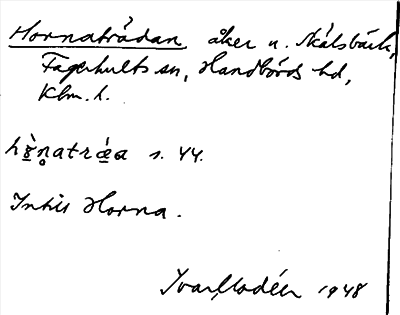 Hornatrådan åker n. Skälsbäck,
Fagerhults sn, Handbörds hd,
Klm. l.
s. 44.
Intill Horna.
Ivar Modéer 1948